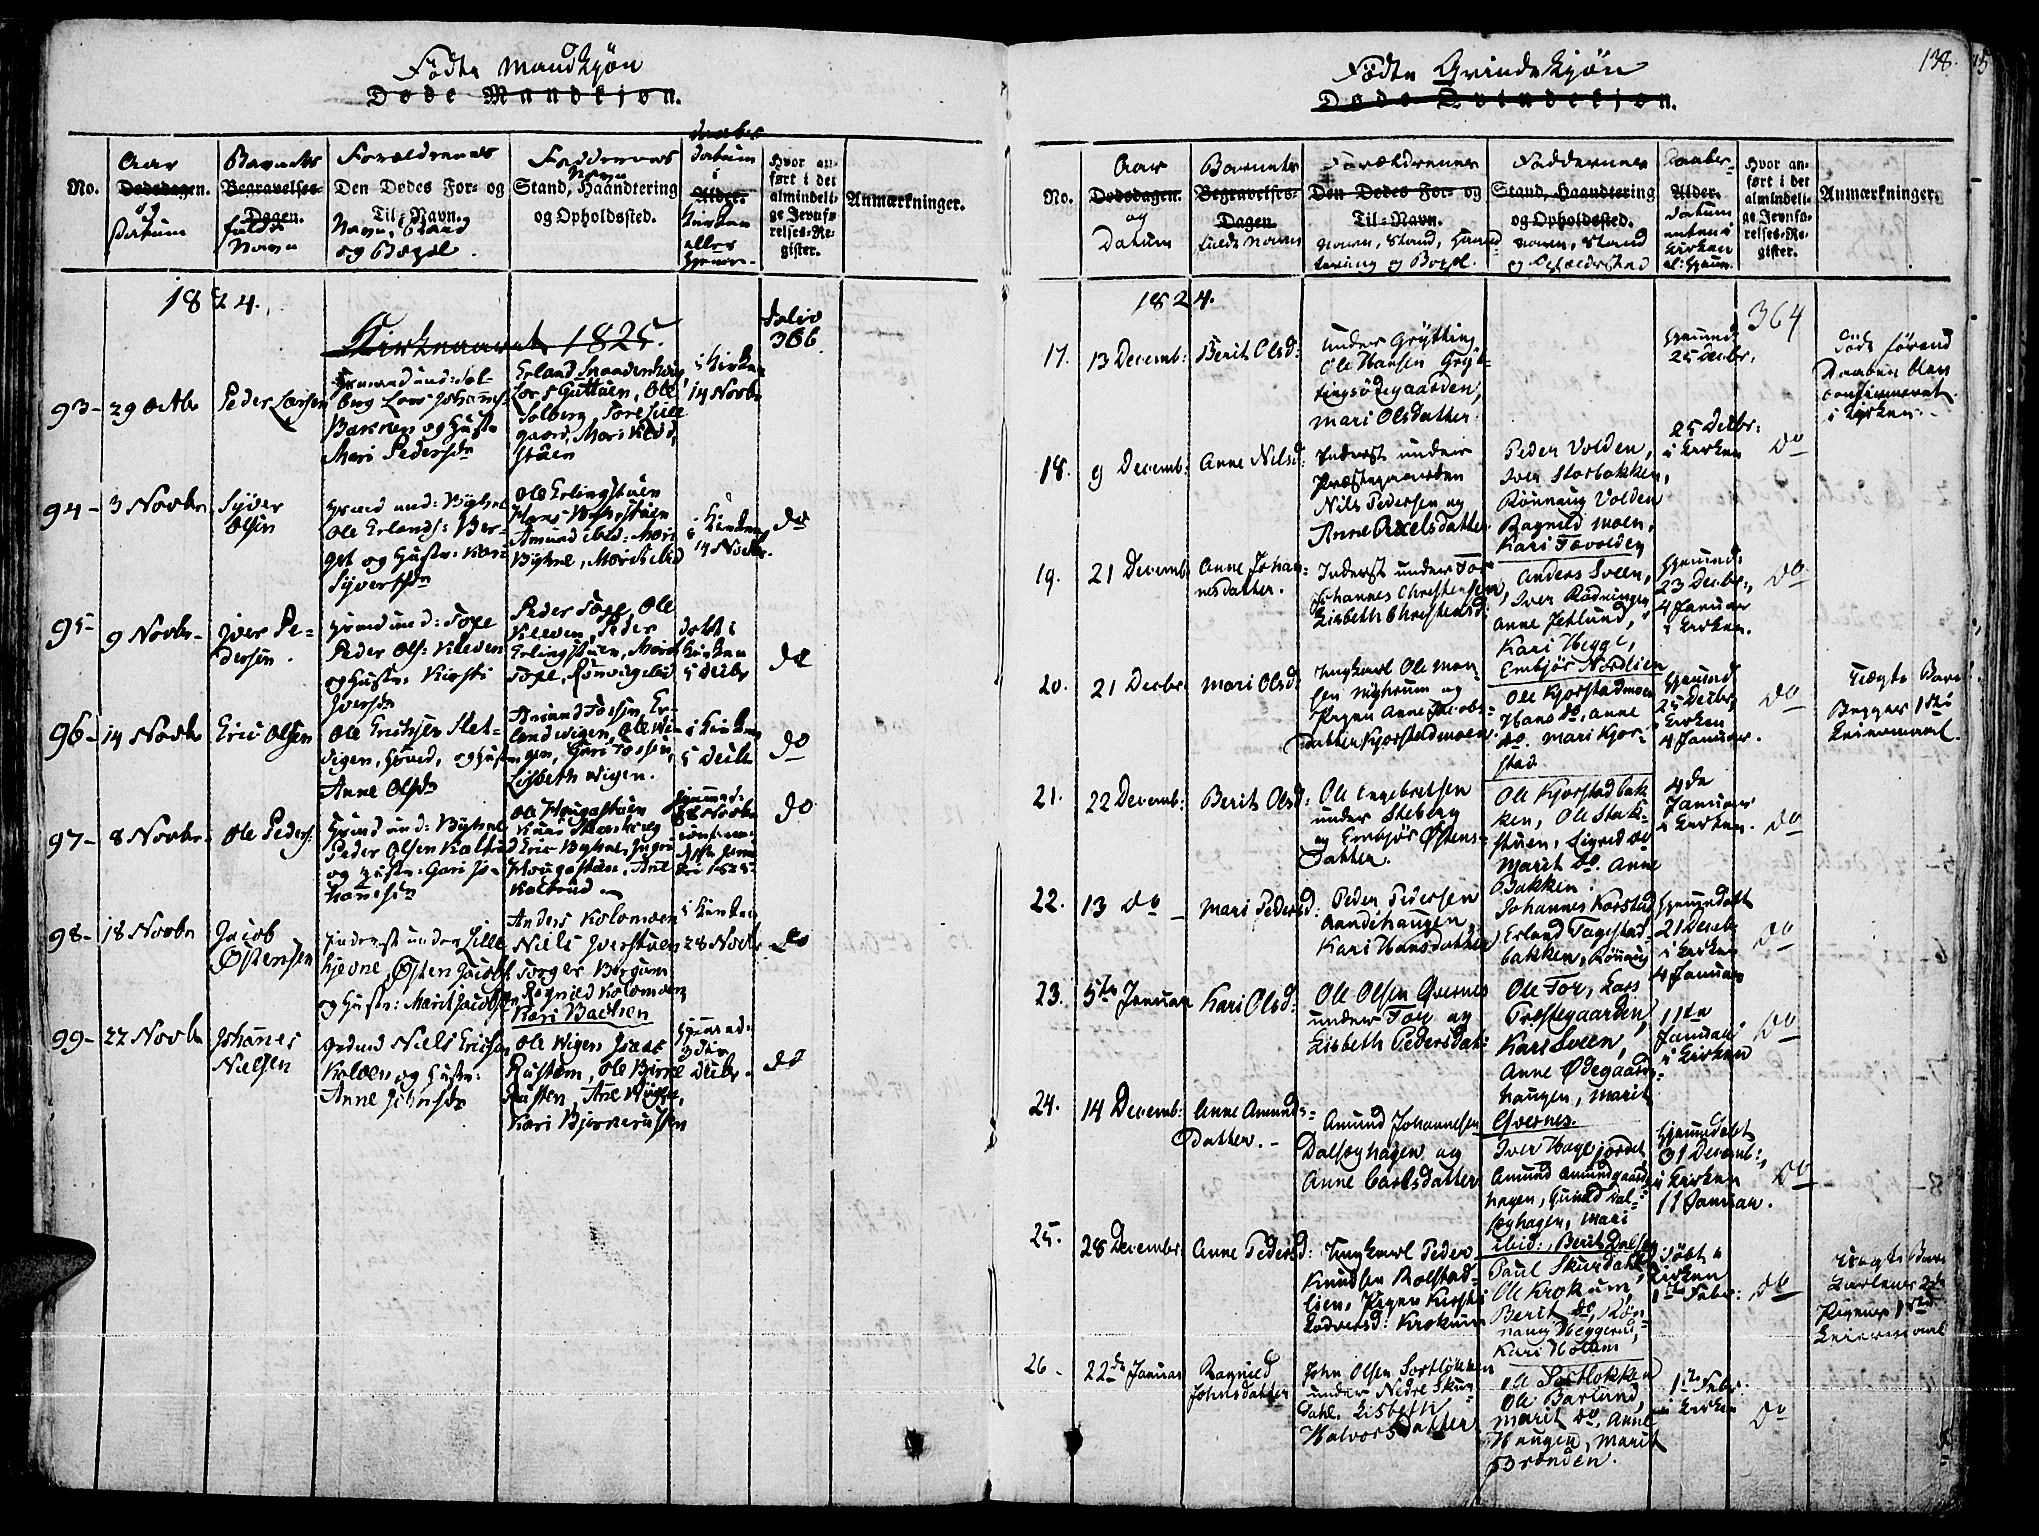 Fødte Mandkjøn
Døde Mandkjøn.
No.
Aar
Dødsdagen.
og
Datum
Barnets
Begravelses-
Dagen.
fulde
Navn
Forældrenes
Den Dødes For- og
Til-Navn.
Navn, Stand
og Bopæl.
Faddernes
Navn
Stand, Haandtering
og Opholdssted.
Daabs
Datum
i
Alder.
Kirken
eller
Hjemme.
Hvor an-
ført i det
almindeli-
ge Jevnfø-
relses-Re-
gister.
Anmærkninger.
1824.
Kirkeaaret 1825.
Folio
366
93-
29 Octbr
Peder Larsen
Lars Johans:
og Hustr:
Mari Pedersdr
Erland
Lars Guttuen, Ole
Solberg, Tore Lille
gaard, Mari
stuen
i Kirken
14 Novbr
94-
3 Novbr
Syver
Olsen
Ole Erlands: Ber-
get og Hustr: Kari
Syversdr
Ole Erlingstuen
Hans
Amund ibid: Mari
Byhne, Marit ibid
i Kirken
14 Novbr.
do
95-
9 Novbr-
Iver Pe-
dersen.
Peder Ols: Kleven
og Hustr: Kirsti
Iversdr
Peder Foxe, Ole
Kleven, Peder
Erlingstuen, Marit
Foxe, Rønnøug ibid
Døbt i
Kirken
5 Decbr
do
96-
14 Novbr
Eric Olsen
Ole Erichsen Slet-
vigen, Huusmd, og Hustr
Anne Olsdr
Amund Fossen, Er-
land Wigen, Ole Wi-
gen, Gari Fossen,
Lisbeth Wigen.
i Kirken
5 Decbr
do
97-
8 Novbr-
Ole Peders:
Peder Olsen Kalstud
og Hustr: Gari Jo-
hannesdr
Ole Hougastuen
Eric Byhne, Ingri
Hougastuen, Ane
Kalstud
Hjemmed:
28 Novbr
do
98-
18 Novbr
Jacob
Østensen
Inderst under Lille
hjevne, Østen Jacobs:
og Hustr: Marit Jacobsdr
Anders Kolomoen
Niels Iverstuen
Torger Borgum
Ragnild Kolomoen
Kari Bakken
i Kirken
28 Novbr
do
99-
22 Novbr
Johanes
Nielsen
Niels Ericsen
Kolden og Hustr:
Anne Johnsdr
Ole Wigen Isaac
Rusten, Ole Bierke
Rusten, Ane Wigen,
Kari Bjerkerusten
Hjemmed:
3die
Decbr.
do
138.
Fødte Qvindekjøn
Døde Qvindekjøn.
No.
Aar
Dødsdagen.
og
Datum
Barnets
Begravelses-
Dagen.
fulde Navn
Forældrenes
Den Dødes For- og
Til-Navn.
Navn, Stand, Haand
tering og Bopel.
Faddernes
Stand, Haandtering
og Opholdssted.
Navn, Stand
og Opholdssted
Daabs-
Alder.
Datum
enten i
Kirken
el: Hjem.
Hvor an-
ført i det
almindeli-
ge Jevnfø-
relses-Re-
gister.
Anmærkninger.
1824.
364
17.
13 Decemb:
Berit Olsd:
under Grytting
Ole Hansen Gryt-
tingsødegaarden,
Mari Olsdatter.
Hjemmd:
25 Decbr.
Døde førend
Daaben blev
confirmeret
i Kirken.
18.
9 Decemb:
Anne Nilsd:
Inderst under
Præstegaarden
Nils Pedersen og
Anne Paulsdatter
Peder Volden,
Iver Storbakken,
Rønnaug Volden
Ragnild Moen,
Kari Tovolden
25 Decbr:
i Kirken
do
19.
21 Decemb:
Anne Johan-
nesdatter.
Inderst under For
Johannes Christensen
Lisbeth Christensd:
Anders Sveen,
Iver Rødningen
Anne Jetlund,
Kari Hegge,
Embjør Nordlien
Hjemmd:
23 Decbr:,
4 Januar
i Kirken.
do
20.
21 Decbr:
Mari Olsd:
Ungkarl Ole Han-
sen Nyhuum og
Pigen Anne Jacobs-
datter Kjorstadmoen
Ole Kjorstadmoen
Hans do, Anne
do. Mari Kjor-
stad
Hjemmd
25 Decbr,
Kirken
4 Januar.
do
Uægte Barn
Begges 1ste
Leiermaal.
21.
22 Decemb:
Berit Olsd:
Ole Engebretsen
under Steberg
og Embjør Østens-
datter.
Ole Kjorstadbak
ken, Ole Stak-
stuen, Sigred do
Marit do. Anne
Bakken.
4de
Januar
i Kirken.
do
22.
13 do
Mari Pedersd:
Peder Pedersen
Randihaugen,
Kari Hansdatter
Johannes Korstad
Erland Fagestad-
bakken, Rønnaug
Hjemmedøbt
21 Decemb:
i Kirken
4 Januar
do
23.
5te Januar
Kari Olsd:
Ole Olsen Qvernes
under Foxe og
Lisbeth Pedersdat:
Ole For, Lars
Præstegaarden,
Kari Sveen,
Anne Ødegaards-
haugen, Marit
Qvernes.
11te
Januari
i Kirken
do
24.
14 Decemb:
Anne Amunds-
datter.
Amund Johannesen
Dalseghagen og
Anne Carlsdatter
Iver Hagejordet
Amund Amundgaards-
hagen, Gunild Dal-
seghagen, Mari
ibid:, Berit Dalseg
Hjemmedøbt
31 Decemb:,
i Kirken
11 Januar.
do
25.
28 Decembr:
Anne Pedersd:
Ungkarl Peder
Knudsen Rolstad-
lien, Pigen Kirsti
Lodversd: Krokum
Paul Skurdahl,
Ole Krokum,
Berit do, Røn-
naug Heggerud,
Kari Hollum
Døbt i
Kirken
1ste Febr:
do
Uægte Barn
Karlenes 2det
Pigenes 1ste
Leiermaal
26
22de Januar
Ragnild
Johnsdatter
John Olsen Sortløkken
under Nedre Skur-
dahl. Lisbeth
Halvorsdatter
Ole Sortløkken
Ole Barlund,
Marit do. Anne
Haugen, Marit
Brænden.
1ste Febr.
i Kirken
do